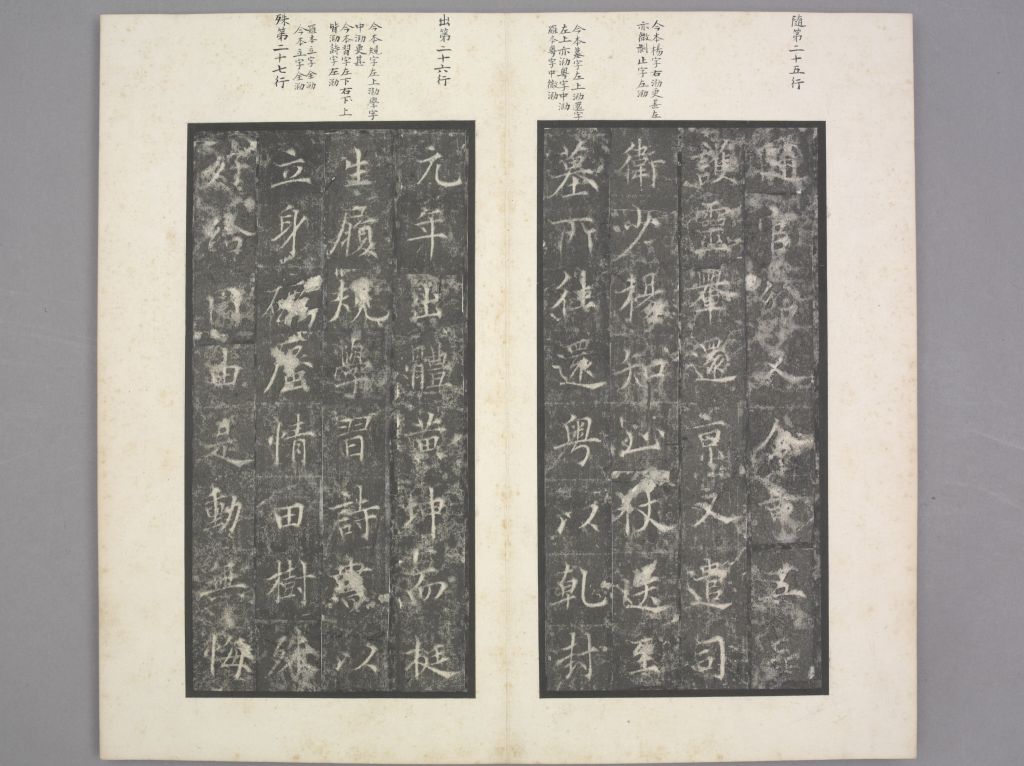 隨第二十五行
今本楊字右泐更甚左
亦微剝止字左泐
今本墓字左上泐還字
左上亦泐粵字中泐
羅本粵字中微泐
通官又令五
護靈轝還京又遣司
衛少楊知止仗送至
墓所往還粵以乾封
出第二十六行
今本規字左上泐學字
中泐更甚
今本習字左下右下上
皆泐詩字左泐
殊第二十七行
羅本立字全泐
今本立字全泐
元年出體黃坤而挺
生履規學習詩書以
立身情田樹
好由是動無悔